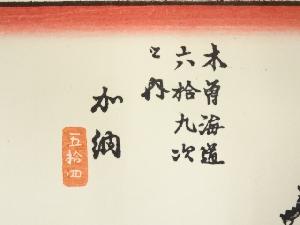 木曽海道
六拾九次
之内
加納
五拾四